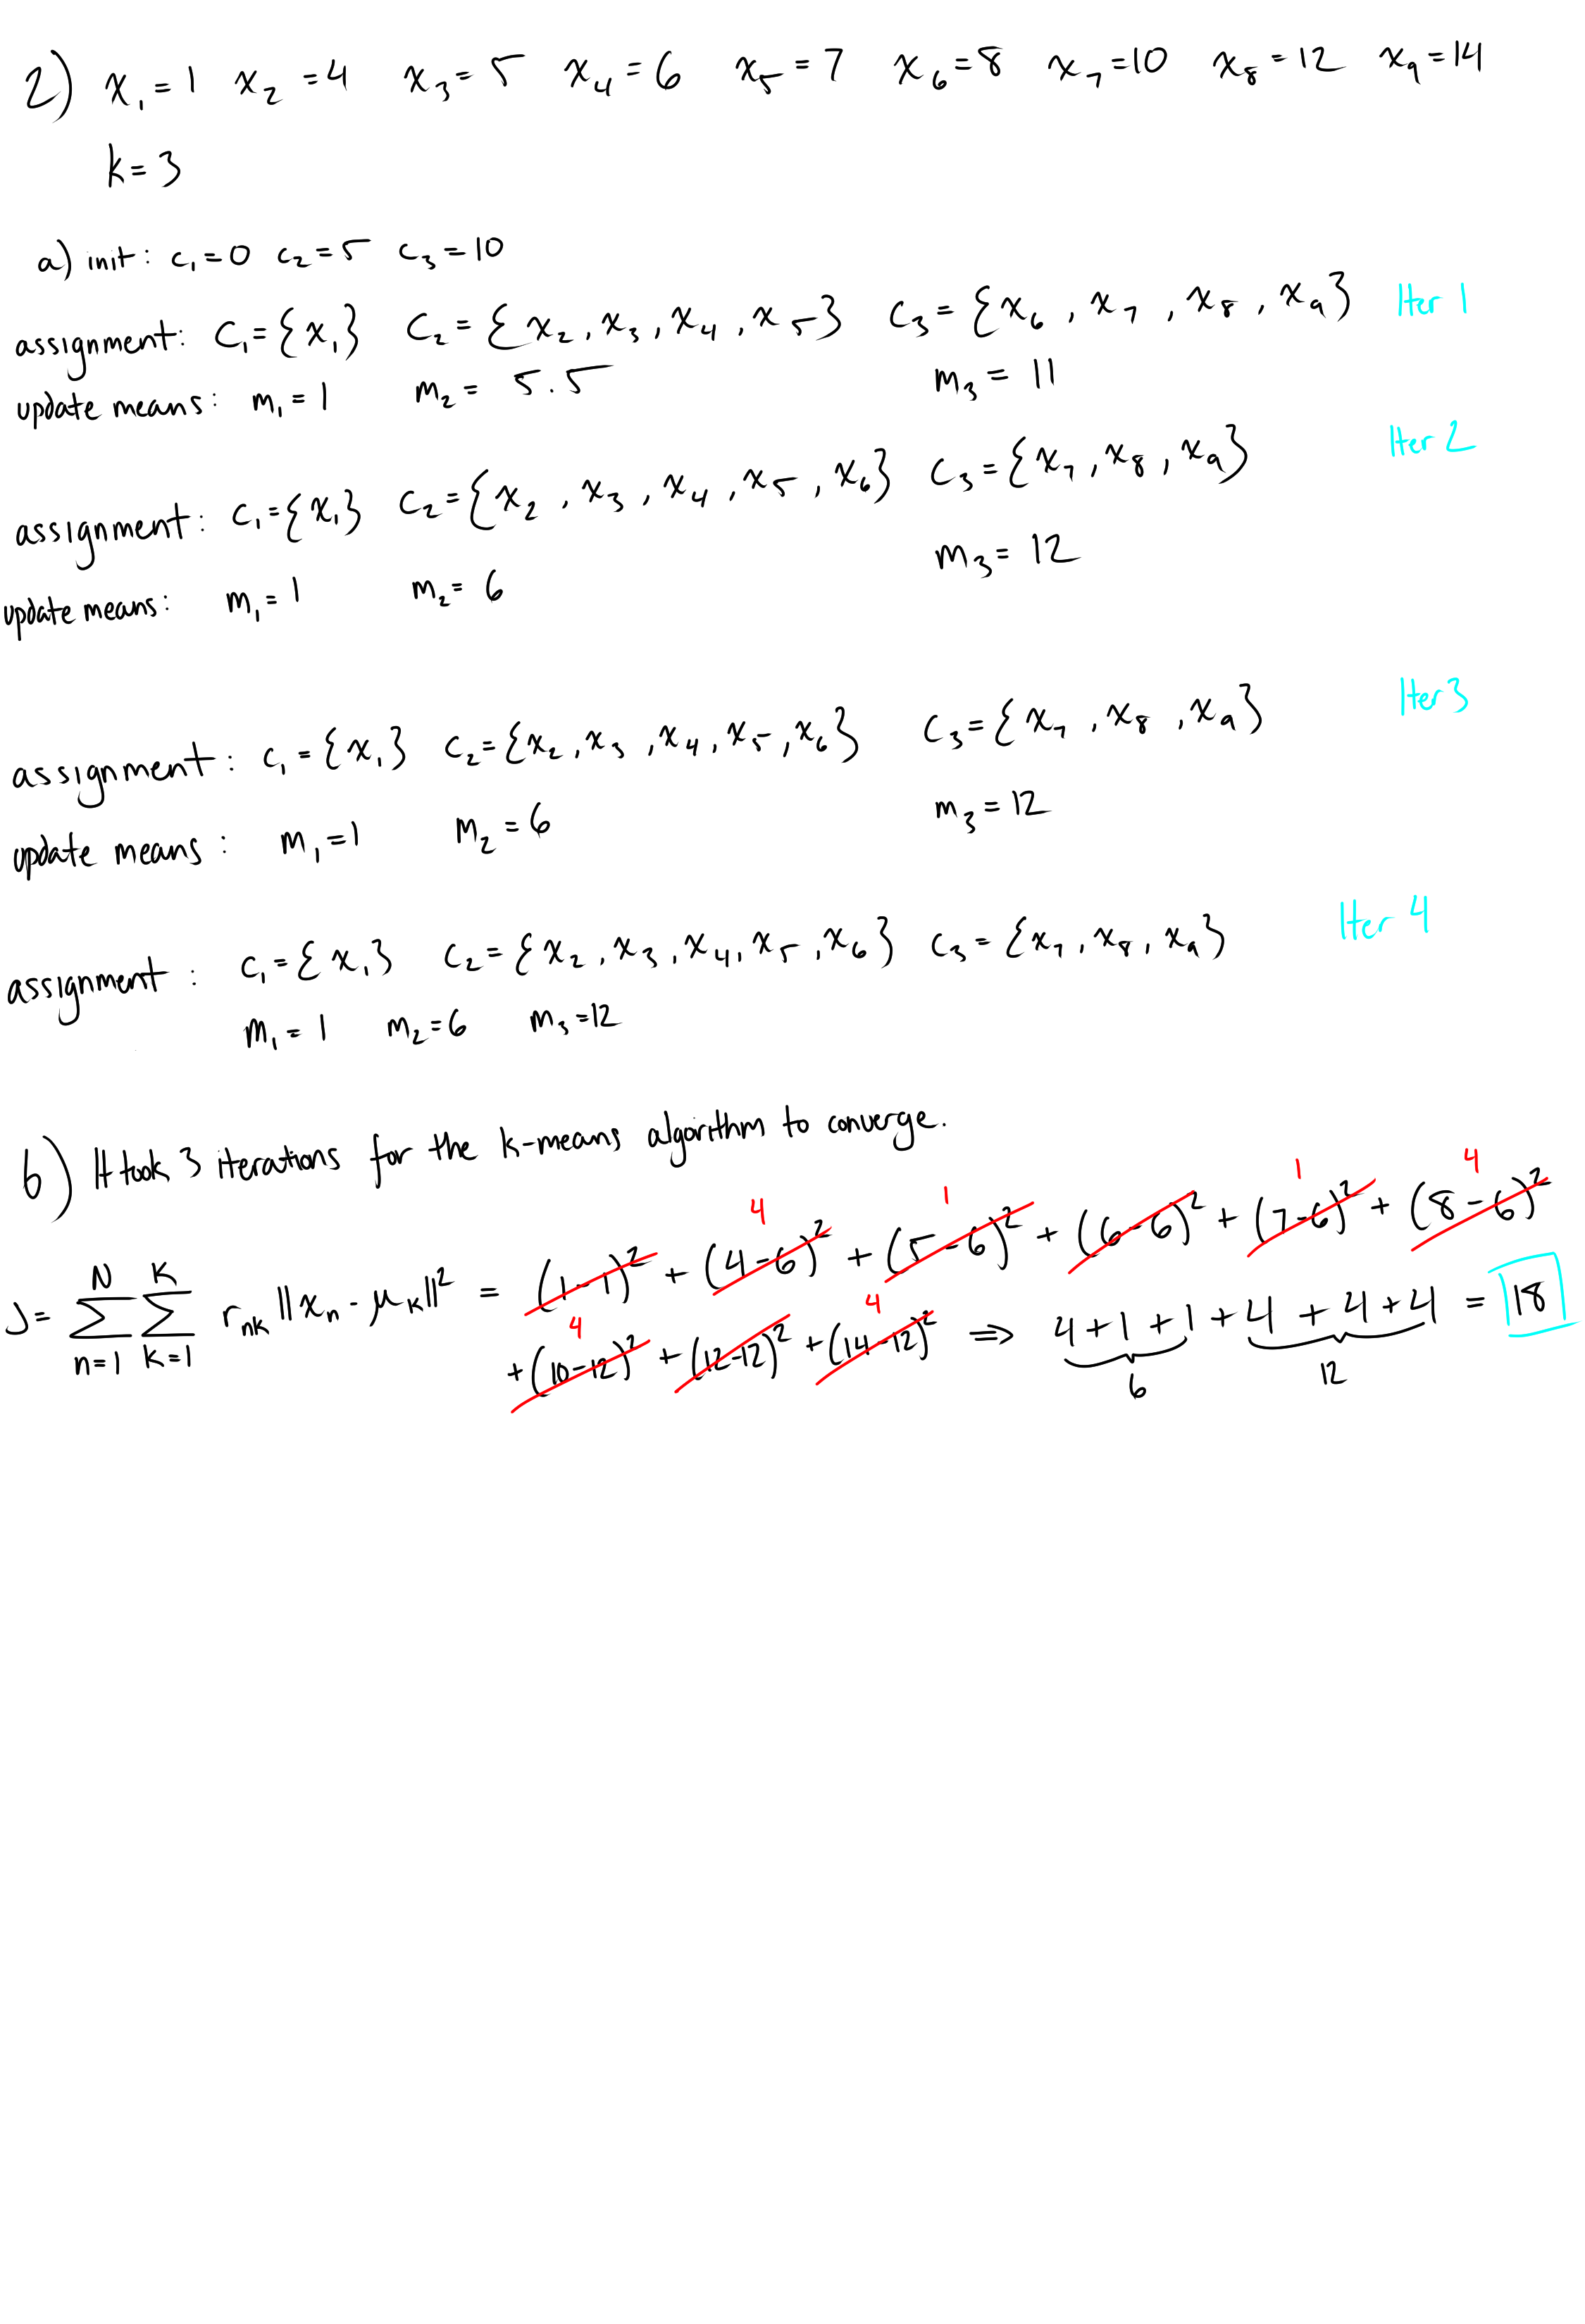 2) x₁ = 1 x₂ = 4 x₃ = 5 x₄ = 6 x₅ = 7 x₆ = 8 x₇ = 10 x₈ = 12 x₉ = 14
k = 3
a) init: c₁ = 0 c₂ = 5 c₃ = 10
assignment: C₁ = {x₁} C₂ = {x₂, x₃, x₄, x₅} C₃ = {x₆, x₇, x₈, x₉} Iter 1
update means: m₁ = 1 m₂ = 5.5 m₃ = 11
assignment: C₁ = {x₁} C₂ = {x₂, x₃, x₄, x₅, x₆} C₃ = {x₇, x₈, x₉} Iter 2
update means: m₁ = 1 m₂ = 6 m₃ = 12
assignment: C₁ = {x₁} C₂ = {x₂, x₃, x₄, x₅, x₆} C₃ = {x₇, x₈, x₉} Iter 3
update means: m₁ = 1 m₂ = 6 m₃ = 12
assignment: C₁ = {x₁} C₂ = {x₂, x₃, x₄, x₅, x₆} C₃ = {x₇, x₈, x₉} Iter 4
m₁ = 1 m₂ = 6 m₃ = 12
b) It took 3 iterations for the k-means algorithm to converge.
4 1 1 4
J = N∑n=1 K∑k=1 rₙₖ ||xₙ - μₖ||² = (1-1)² + (4-6)² + (5-6)² + (6-6)² + (7-6)² + (8-6)²
4 4
+ (10-12)² + (12-12)² + (14-12)² ⇒ 4 + 1 + 1 + 4 + 4 + 4 = 18
6 12